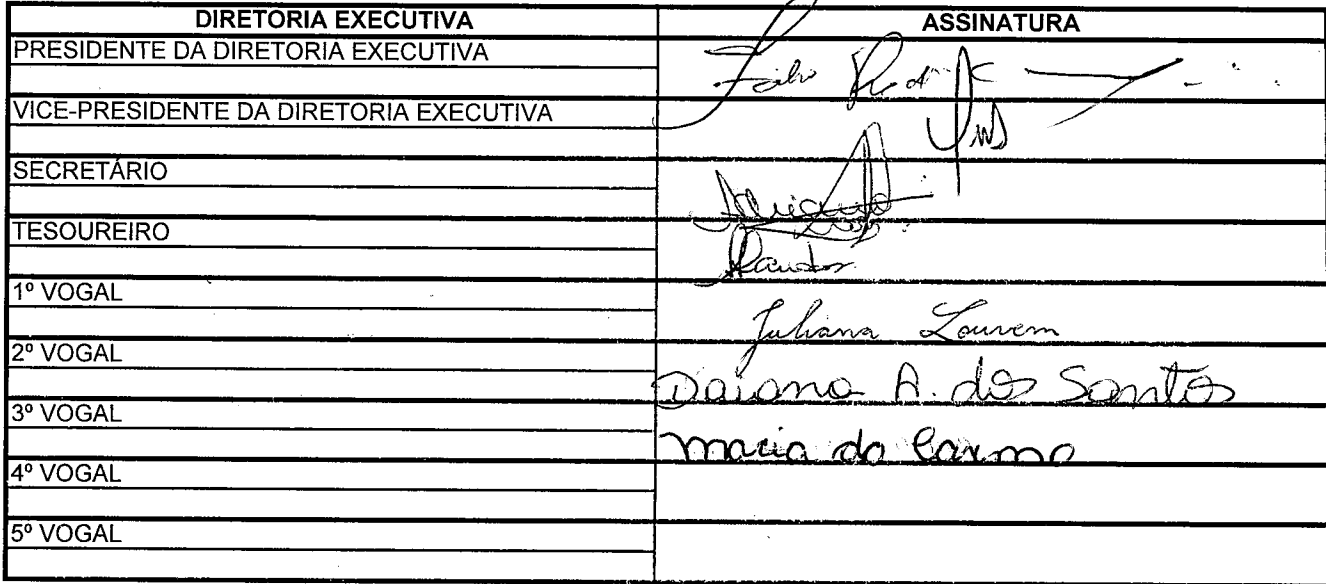 DIRETORIA EXECUTIVA ASSINATURA
PRESIDENTE DA DIRETORIA EXECUTIVA
VICE-PRESIDENTE DA DIRETORIA EXECUTIVA
SECRETÁRIO
TESOUREIRO
1º VOGAL
Juliana Louvem
2º VOGAL
Daiana A. dos Santos
3º VOGAL
Maria do Carmo
4º VOGAL
5º VOGAL